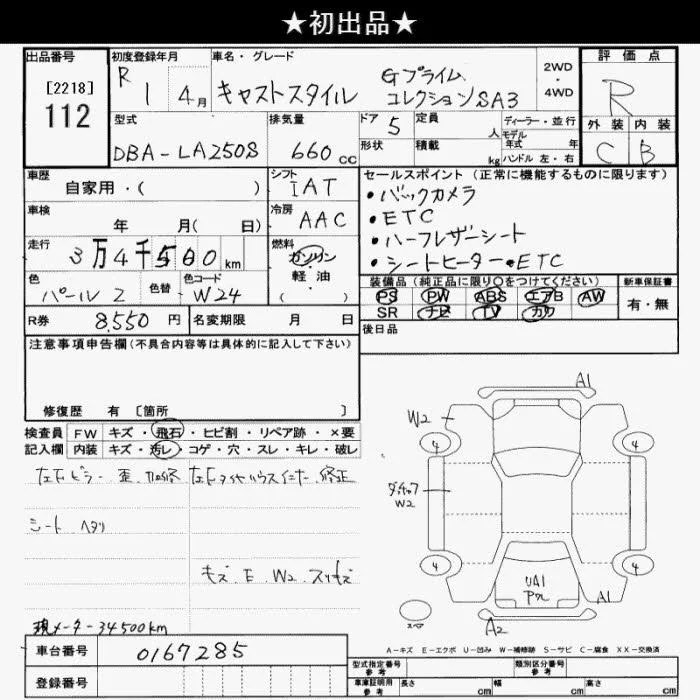 ★初出品★
出品番号
[2218]
112
初度登録年月
R 1 4月
車名・グレード
キャストスタイル
Gプライム
コレクションSA3
2WD
・
4WD
評価点
R
外装 内装
C B
型式
DBA-LA250S
排気量
660 cc
ドア 5
定員 人
形状
積載 kg
ディーラー・並行
モデル
年式 年
ハンドル 左・右
車歴
自家用・( )
シフト
IAT
セールスポイント(正常に機能するものに限ります)
・バックカメラ
・ETC
・ハーフレザーシート
・シートヒーター・ETC
車検
年 月(日)
冷房
AAC
走行
3万4千500km
燃料
ガソリン
軽・油
( )
色
パール2
色替
色コード
W24
装備品(純正品に限り○をつけてください)
PS PW ABS エアB AW
SR ナビ TV カワ
新車保証書
有・無
R券 8,550円
名変期限 月 日
後日品
注意事項申告欄(不具合内容等は具体的に記入して下さい)
修復歴 有 [箇所 ]
検査員
記入欄
FW キズ・飛石・ヒビ割・リペア跡・×要
内装 キズ・汚レ・コゲ・穴・スレ・キレ・破レ
シート ヘタリ
キズ.E.W2.スリキズ
現メーター34500km
車台番号 0167285
登録番号
A1
W2
4
4
W2
4
4
UA1
A1
A2
A-キズ E-エクボ U-凹み W-補修跡 S-サビ C-腐食 XX-交換済
型式指定番号
参考
類別区分番号
参考
車庫証明用
参考
長さ cm
幅 cm
高さ cm